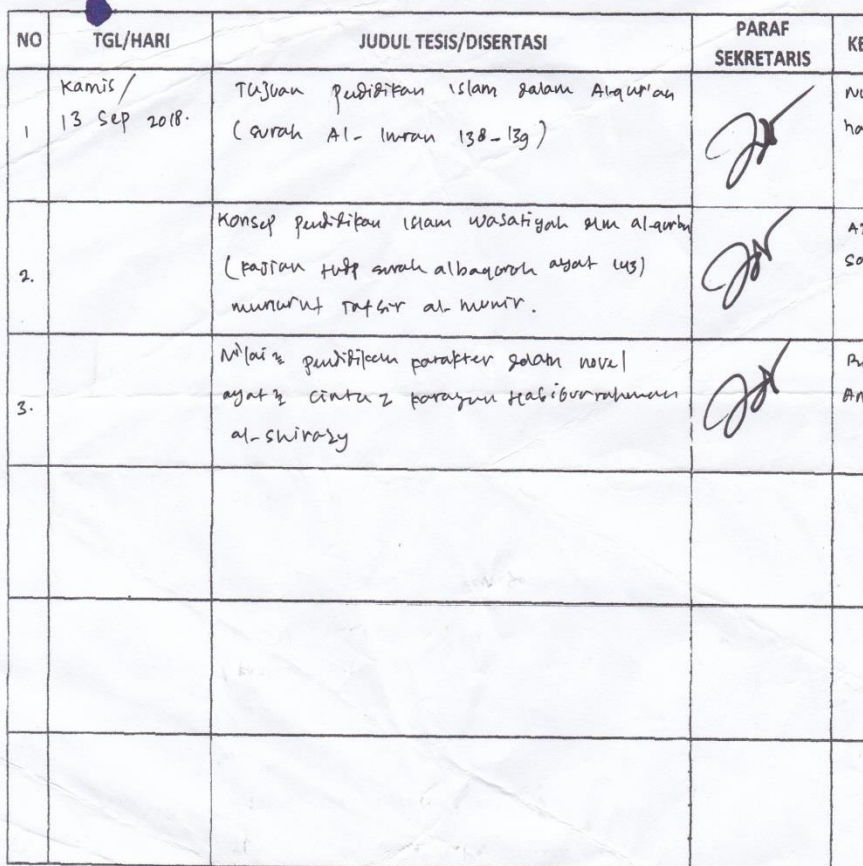 NO TGL/HARI JUDUL TESIS/DISERTASI PARAF SEKRETARIS KE
1 Kamis/ Tujuan pendidikan Islam dalam Alqur'an Nu
13 Sep 2018. (surah Al-Imran 138-139) ha
Konsep pendidikan Islam wasatiyah dlm al-qur'an
2. (kajian thdp surah albaqarah ayat 143) Sa
menurut Tafsir al-munir.
Nilai2 pendidikan karakter dalam novel
3. ayat2 cinta2 karangan Habiburrahman An
al-shirazy